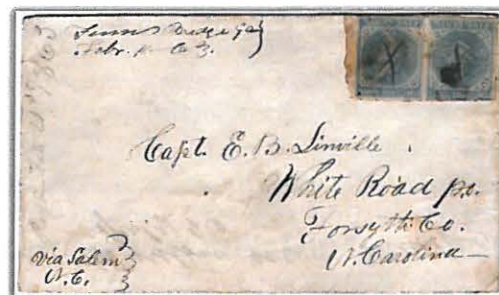 Bridge Ga
Febr. 63
Capt. E. B. Linville
White Road po.
Forsyth Co.
N. Carolina
Via Salem
N. C.